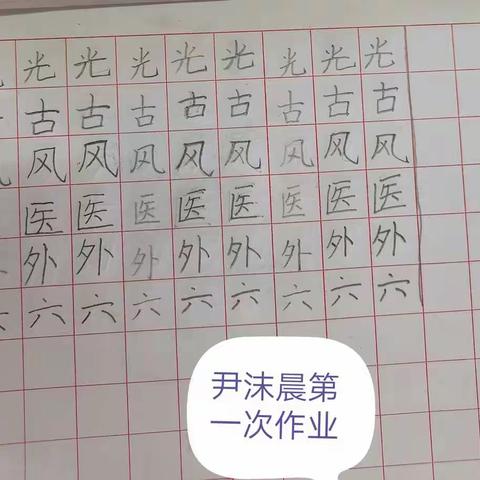 光光光光光光光光
古古古古古古古古
风风风风风风风风
医医医医医医医医
外外外外外外外外
六六六六六六六六
尹沫晨第
一次作业